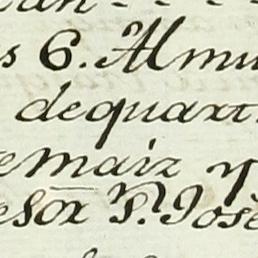 s 6. Almu
dequart
emaiz y
esor P. José